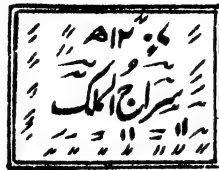 ۱۲۰۷ھ
سراج الملک